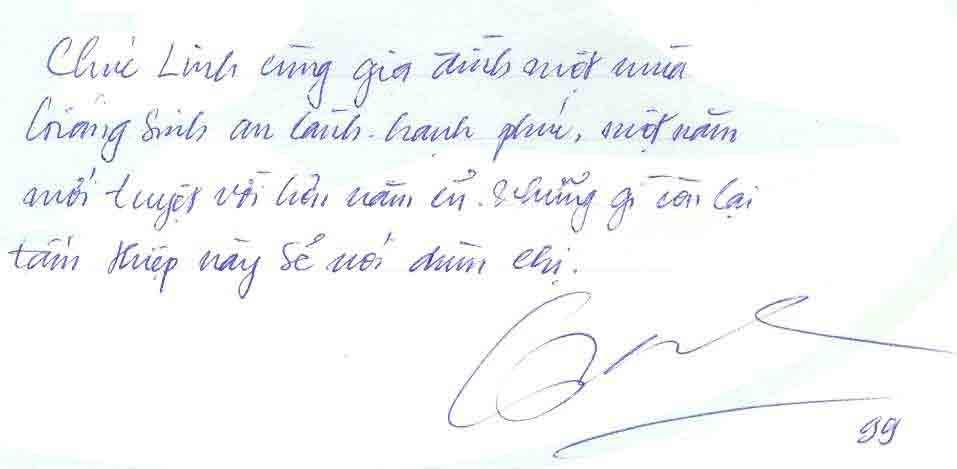 Chúc Linh cùng gia đình một mùa
Giáng Sinh an lành. hạnh phúc, một năm
mới tuyệt vời hơn năm cũ. Những gì còn lại
tấm thiệp này sẽ nói dùm chị.
99